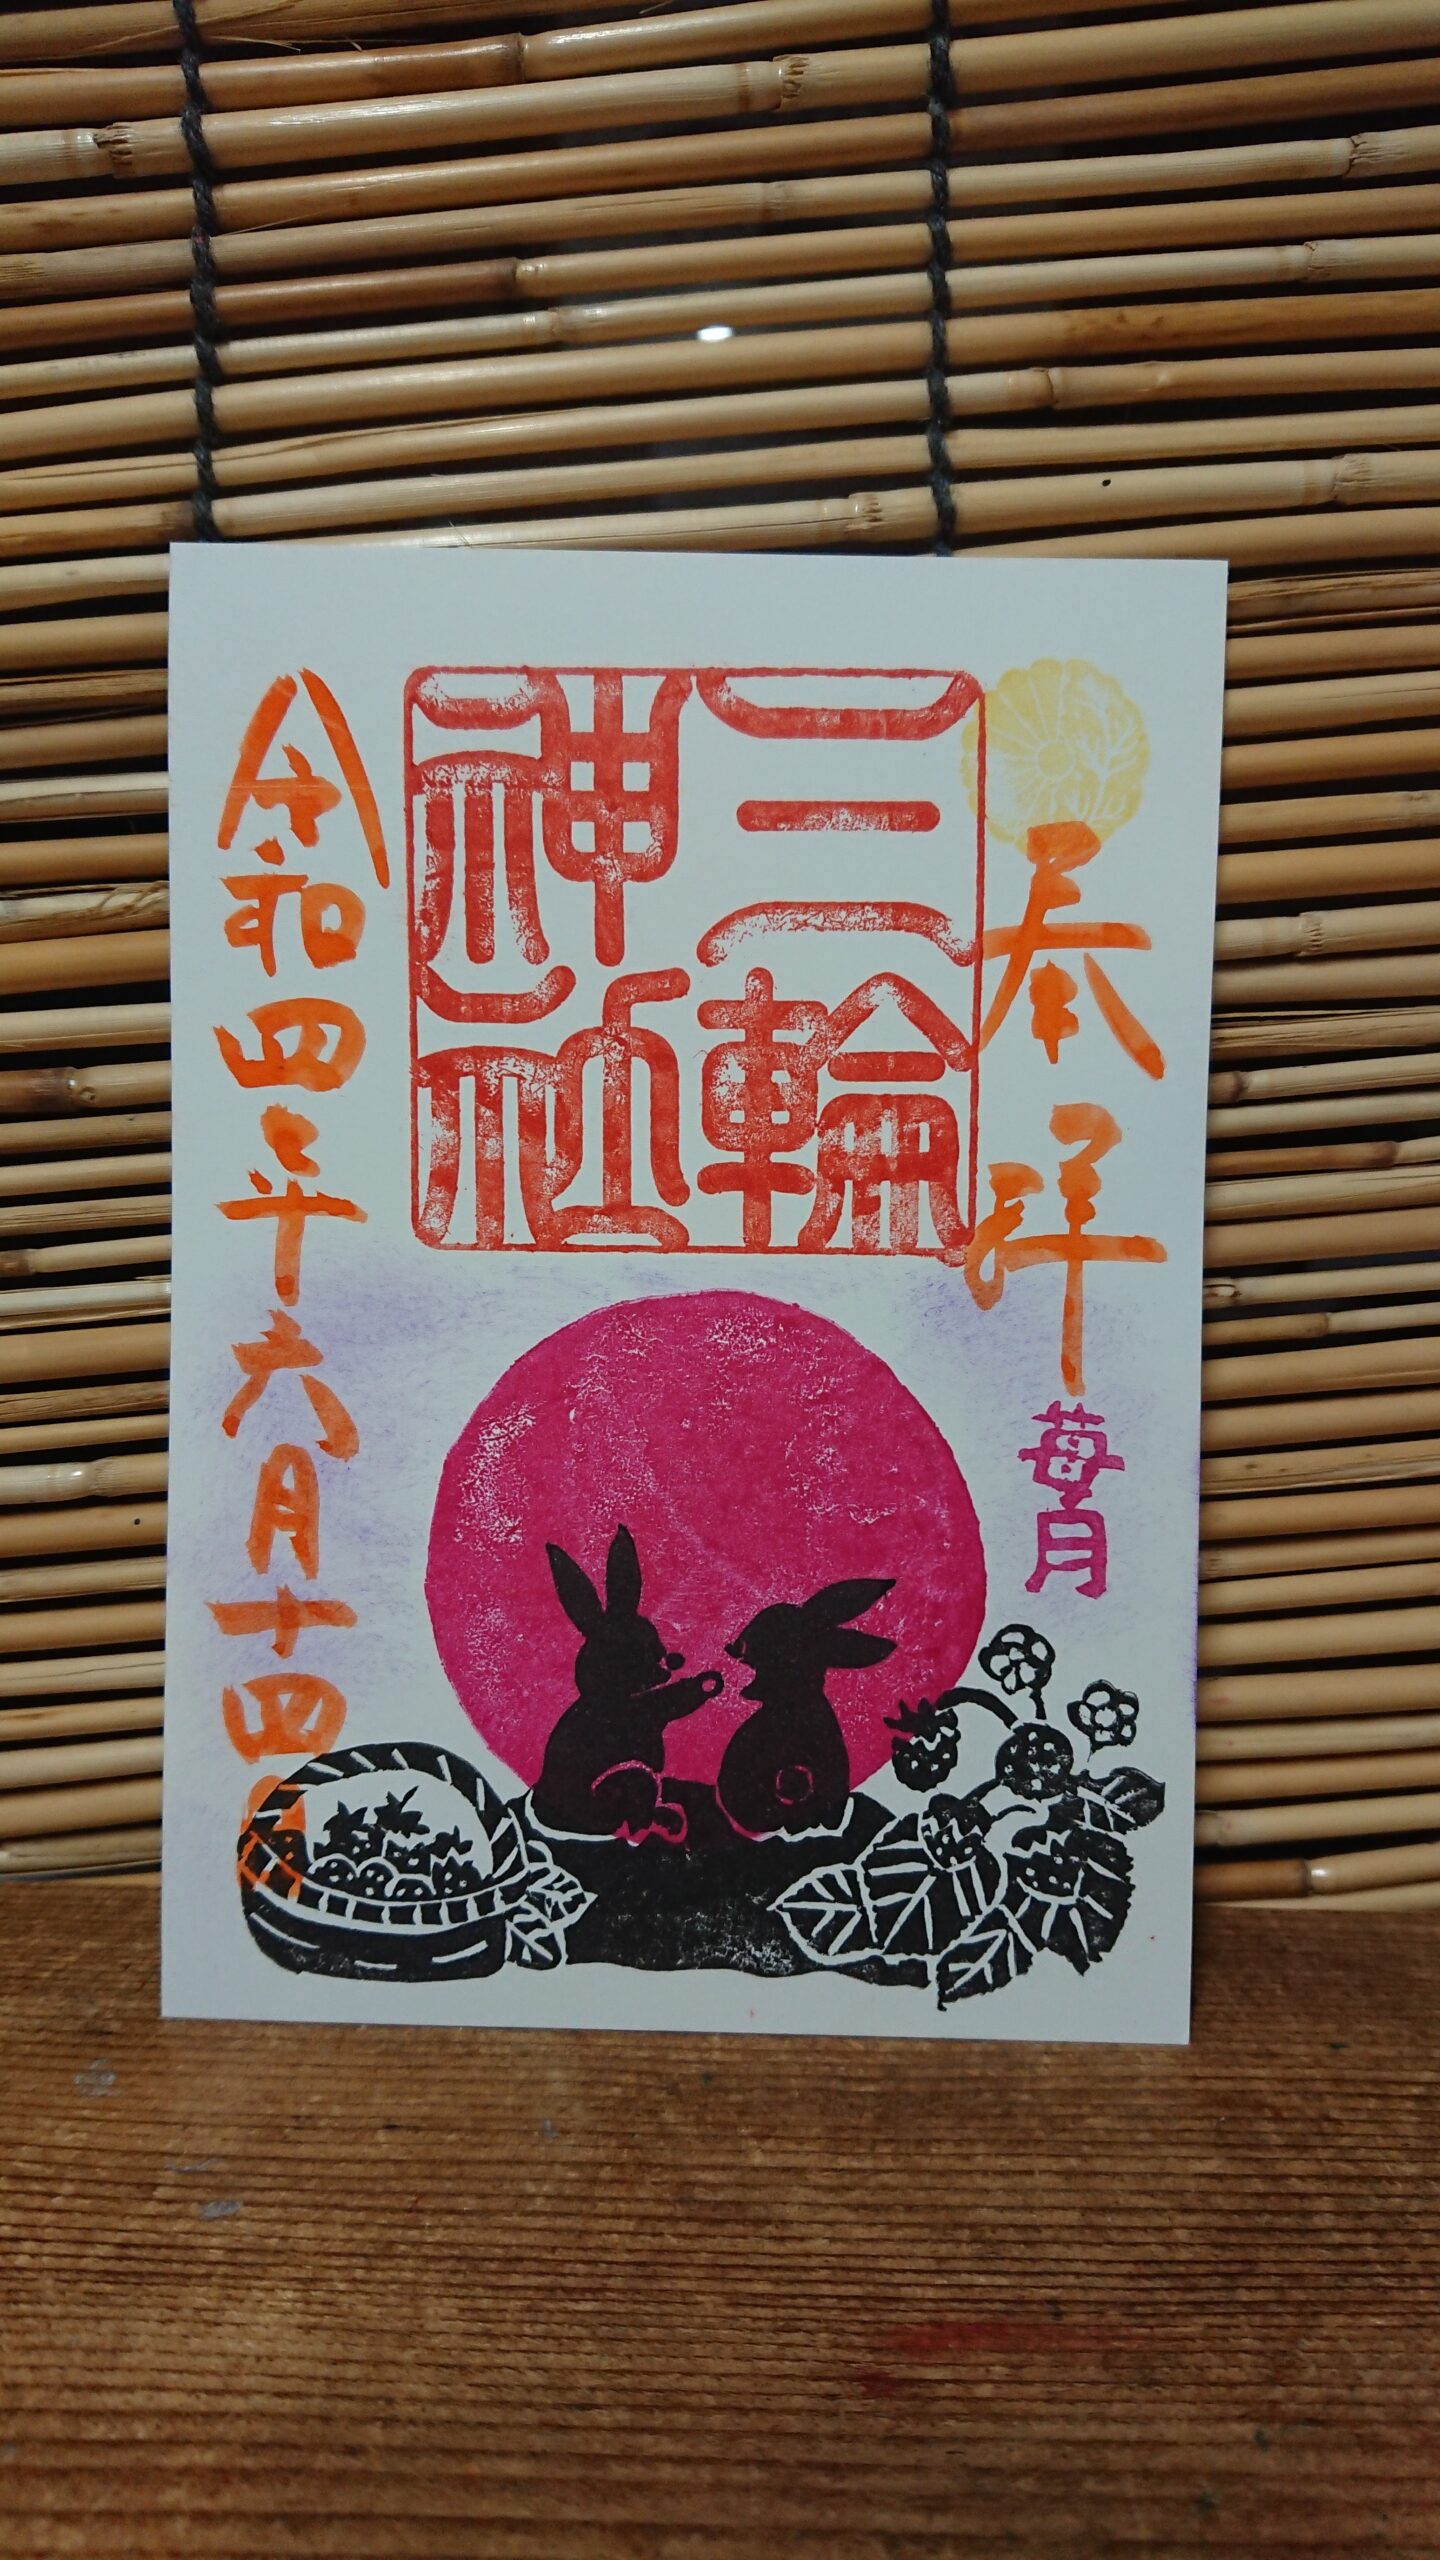 奉拝
苺月
三輪
神社
令和四年六月十四日